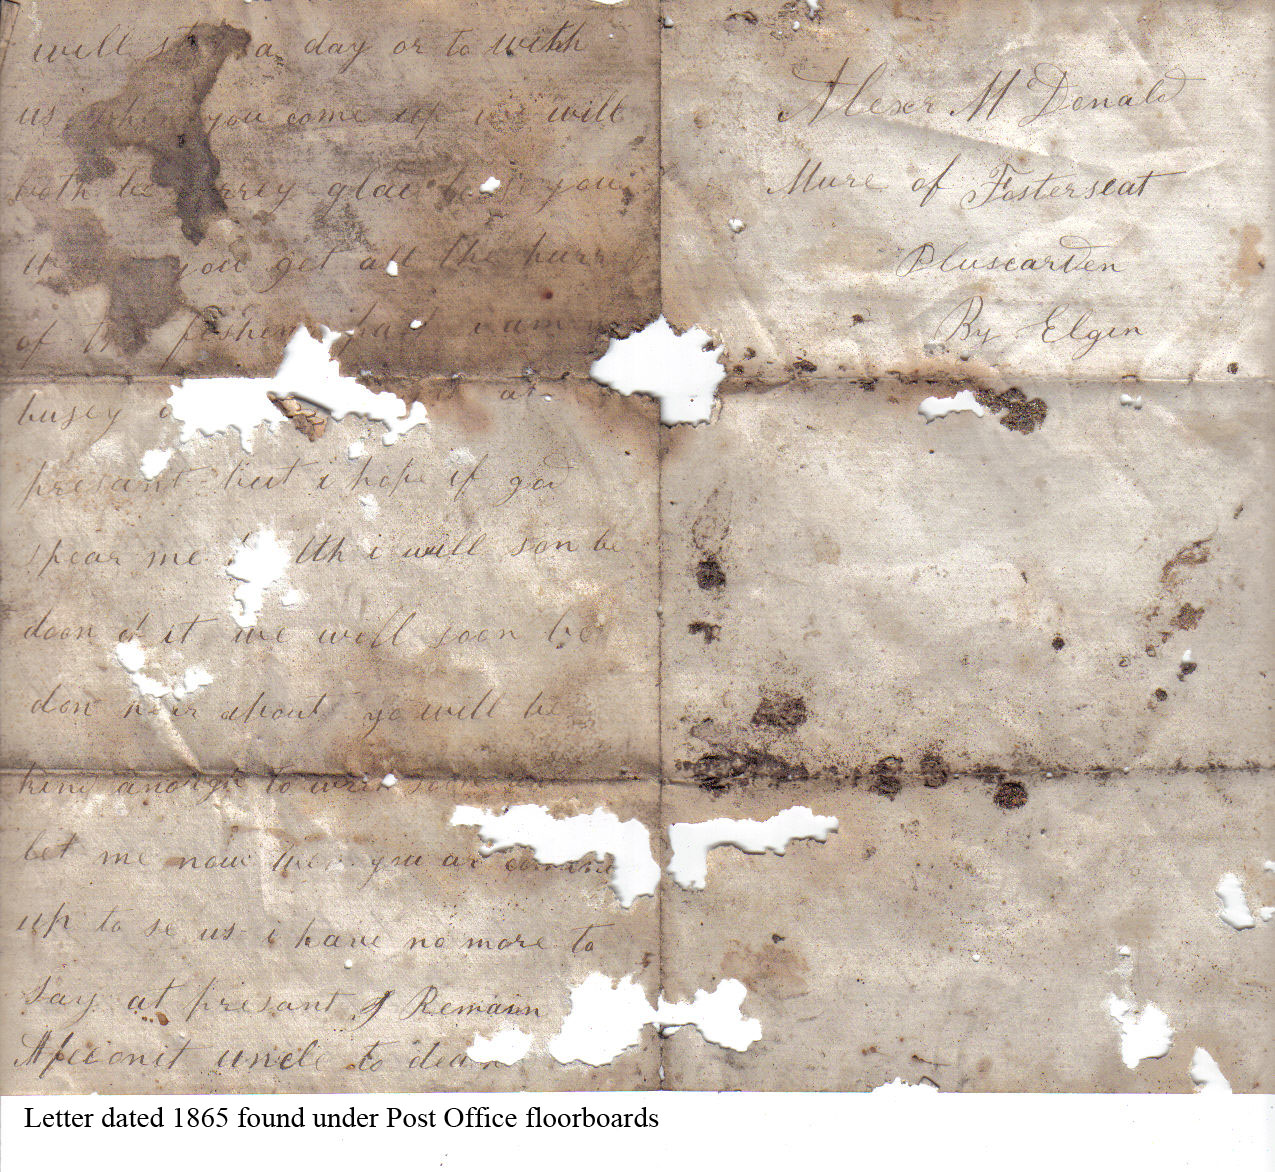 will a day or to with
us when you come up we will
both be verrey glad to se you
you get all the hurry
of fishen i am
busey
presant but i hope if god
spear me i will son be
doon of it we will soon be
don now about yo will be
kind anough to writ
let me now when you ar coming
up to se us i have no more to
say at presant I Remain
Afecionit uncle to dear
Alexr McDonald
Mure of Fosterseat
Pluscarden
By Elgin
Letter dated 1865 found under Post Office floorboards